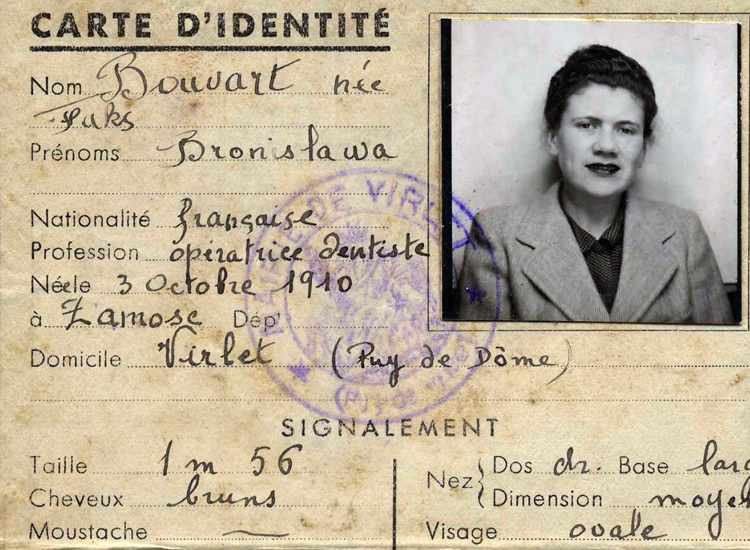 CARTE D'IDENTITÉ
Nom Bouvart née
Fuks
Prénoms Bronislawa
Nationalité française
Profession opératrice dentiste
Née le 3 Octobre 1910
à Zamosc Dép'
Domicile Virlet (Puy de Dôme)
MAIRIE DE VIRLET
SIGNALEMENT
Taille 1 m 56
Cheveux bruns
Moustache
Nez Dos dr. Base
Dimension
Visage ovale